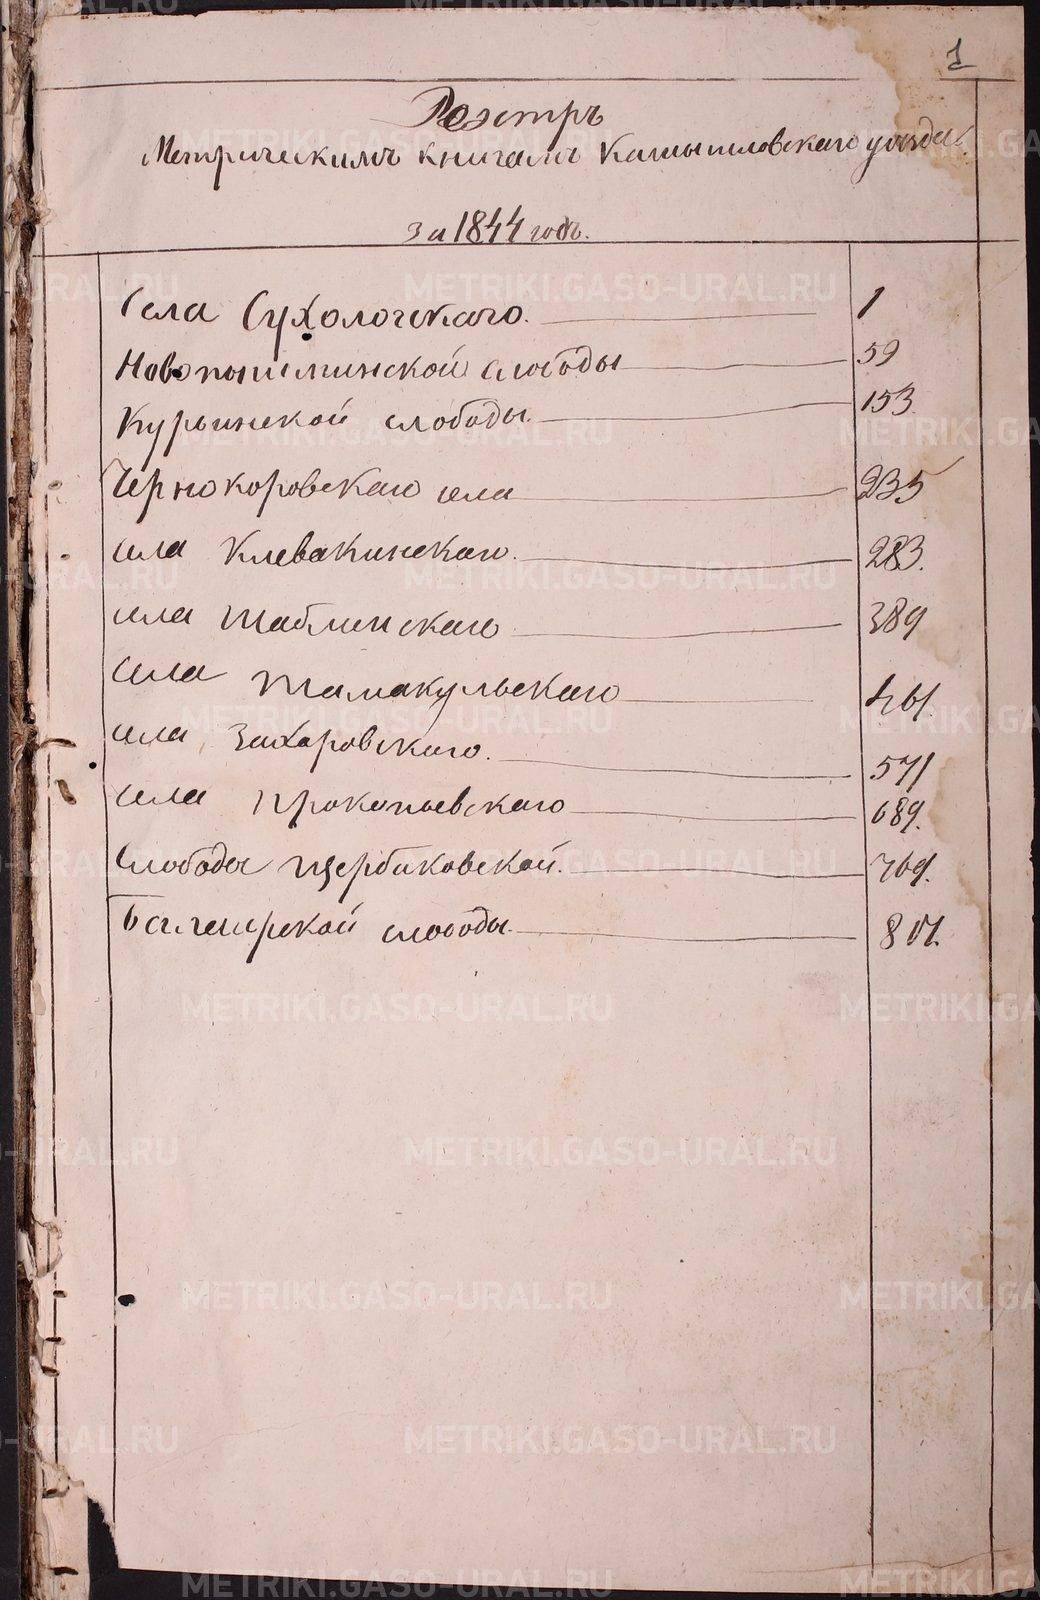 1
Реэстръ
Метрическимъ книгамъ Камышловскаго уѣзда
за 1844 годъ.
Села Сухоложскаго. 1
Новопышминской слободы 59
Курьинской слободы 153
Чернокоровскаго села 235
села Клевакинскаго. 283.
села Таблинскаго 389
села Тамакульскаго 461.
села Захаровскаго. 571
села Прокопьевскаго 689.
Слободы Щербаковской. 769.
слободы. 801.
METRIKI.GASO-URAL.RU